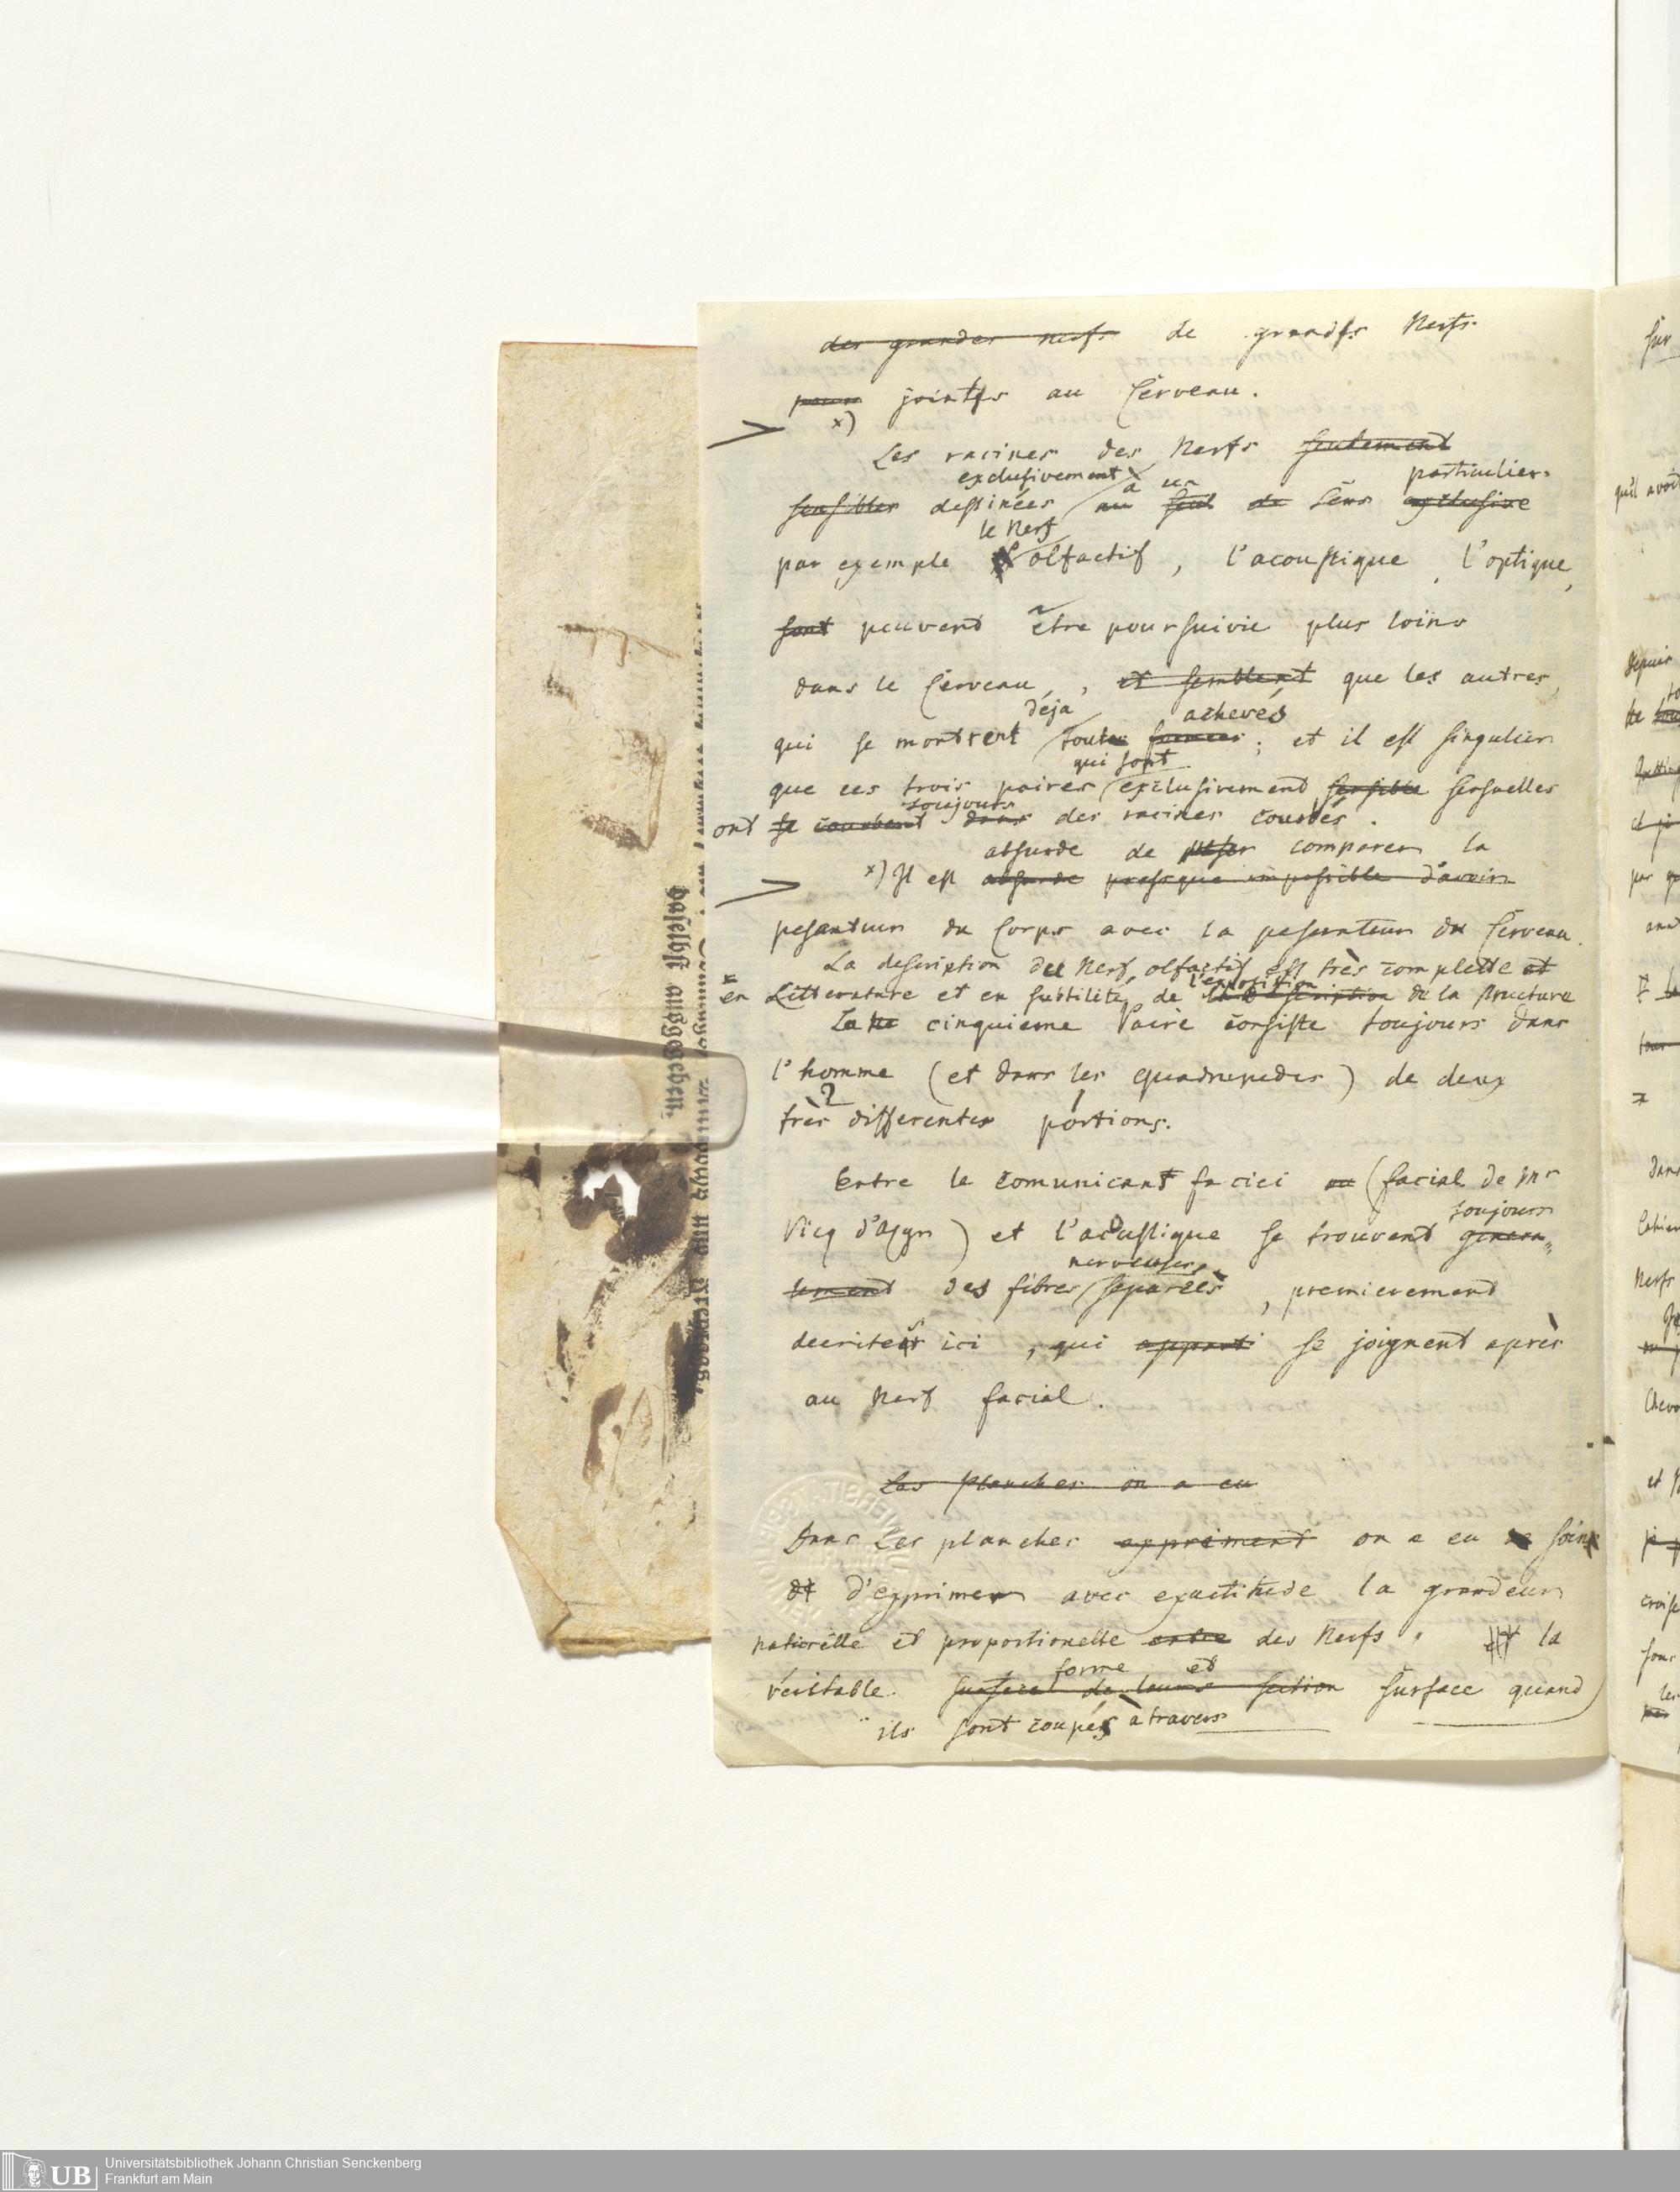 des grandes nerfs de grands Nerfs
pour joints au Cerveau.
x)
Les racines des Nerfs seulement
exclusivement à un particulier.
sensibles destinées au seul de sens exclusive
le Nerf
par exemple olfactif, l'acoustique, l'optique,
sont peuvent être poursuivie plus loins
dans le Cerveau, et semblent que les autres,
déja achevés
qui se montrent toutes formées; et il est singulier
qui sont
que ces trois paires exclusivement sensible sensuelles
toujours
ont se courbent dans des racines courbés.
absurde de peser comparer la
x) Il est absurde presque impossible d'avoir
pesanteur du Corps avec la pesanteur du Cerveau.
La description du Nerf olfactif est très complette et
l'exposition
en Litterature et en subtilité de la description de la structure
La cinquieme Paire consiste toujours dans
l'homme (et dans les quadrupedes) de deux
2 1
très differentes portions.
Entre le comunicant faciei ou (facial de Mr
toujours
Vicq d'Azyr) et l'acustique se trouvent genera=
nerveuses
lement des fibres separées, premierement
decrites ici, qui apparti se joignent après
au Nerf facial.
Les Planches on a eu
Dans Les planches expriment on a eu de soin
d'exprimer avec exactitude la grandeur
naturelle et proportionelle entre des Nerfs, et la
forme et
véritable surface de leurs section surface quand
ils sont coupés à travers
daselbst ausgegeben.
sur
qu'il avoit
depuis
par
dans
Cahier
Nerfs
et
Universitätsbibliothek Johann Christian Senckenberg
UB Frankfurt am Main